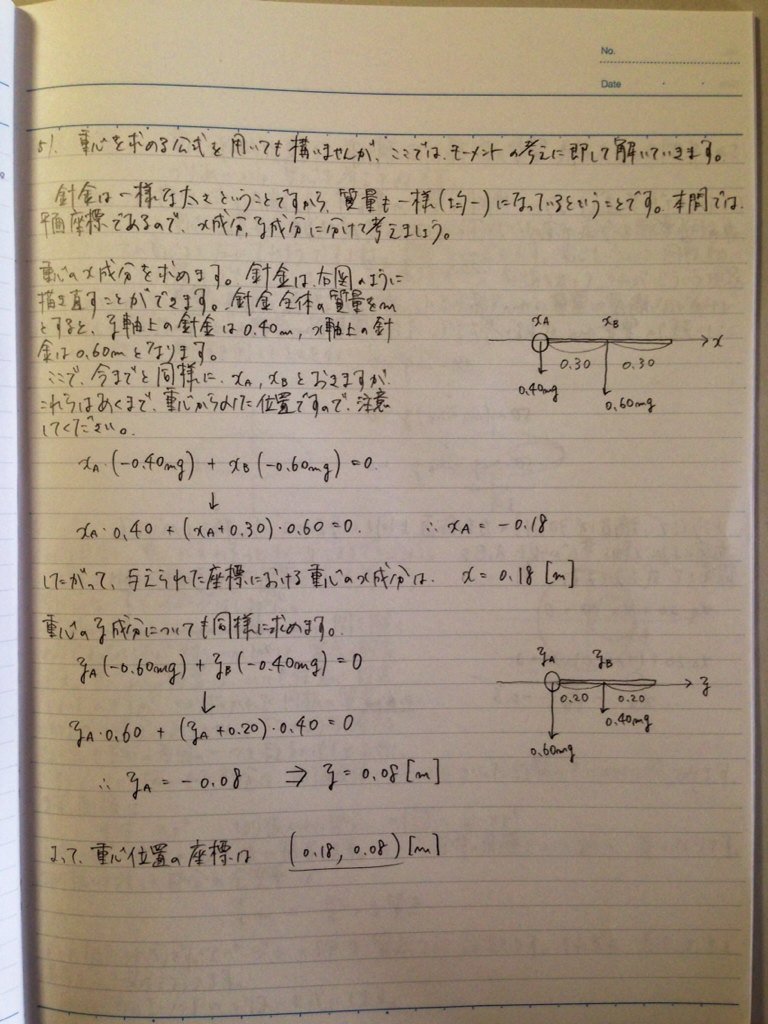 No.
Date
51. 重心を求める公式を用いても構いませんが、ここでは、モーメントの考えに即して解いていきます。
針金は一様な太さということですから、質量も一様(均一)になっているということです。本問では、
平面座標であるので、x成分、y成分に分けて考えましょう。
重心のx成分を求めます。針金は右図のように
描き直すことができます。針金全体の質量をm
とすると、y軸上の針金は0.40m、x軸上の針
金は0.60mとなります。
ここで、今までと同様に、xA, xBとおきますが、
これらはあくまで、重心からみた位置ですので、注意
してください。
xA xB x
0.30 0.30
0.40mg
0.60mg
xA・(-0.40mg) + xB(-0.60mg) = 0
↓
xA・0.40 + (xA+0.30)・0.60 = 0. ∴ xA = -0.18
したがって、与えられた座標における重心のx成分は、 x = 0.18 [m]
重心のy成分についても同様に求めます。
yA(-0.60mg) + yB(-0.40mg) = 0
↓
yA・0.60 + (yA+0.20)・0.40 = 0
∴ yA = -0.08 ⇒ y = 0.08 [m]
yA yB y
0.20 0.20
0.40mg
0.60mg
よって、重心位置の座標は (0.18, 0.08) [m]